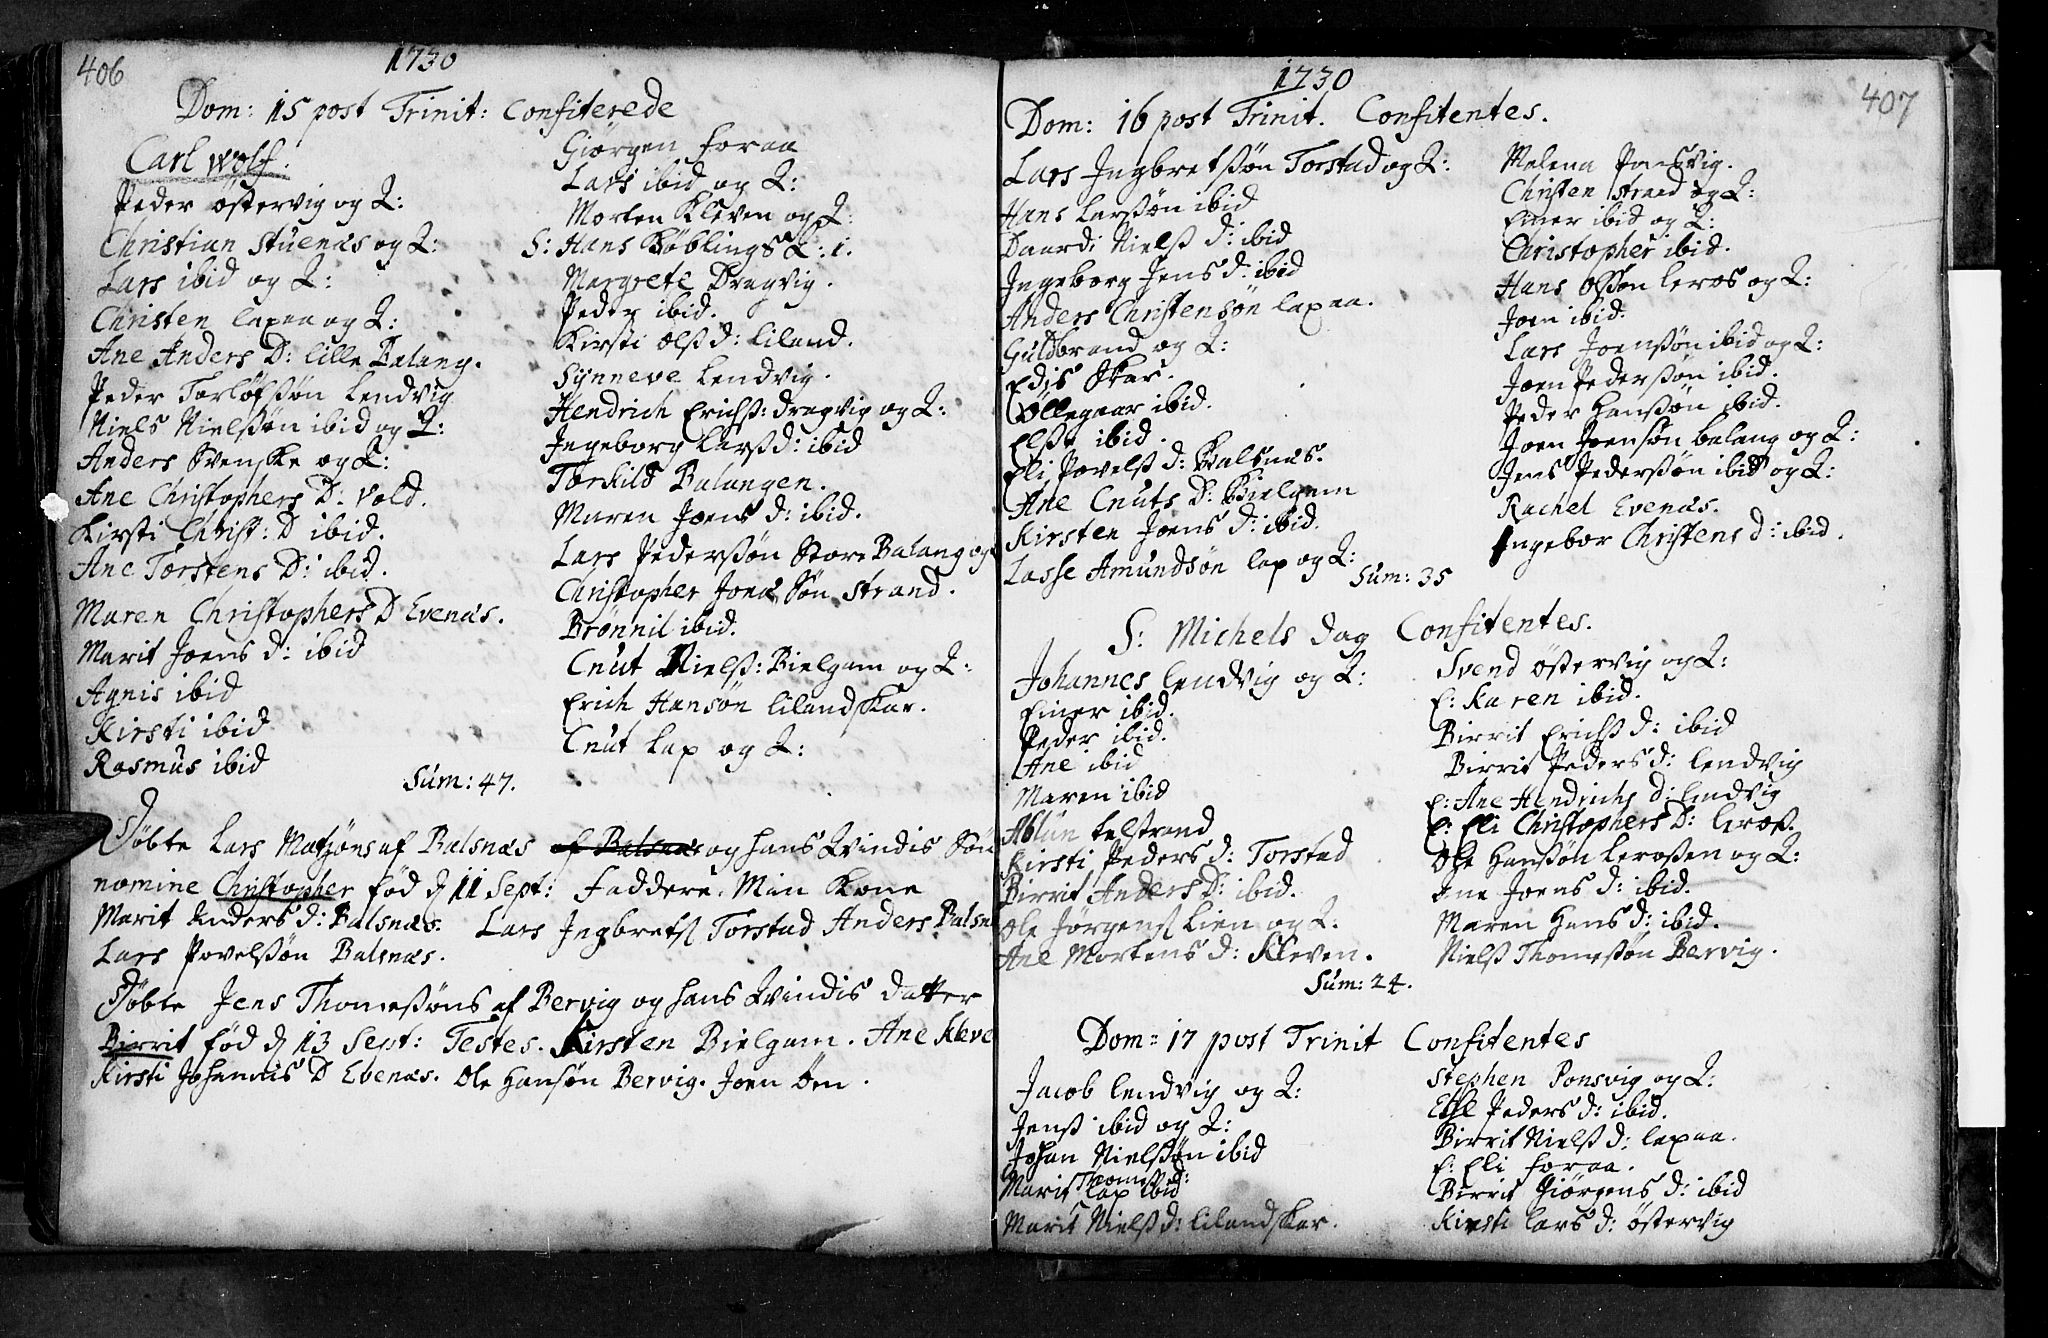 406
1730
Dom: 15 post Trinit: Confiterede
Carl Wolf.
Peder östervig og Q:
Christian Stuenæs og Q:
Lars ibid og Q:
Christen laxaa og Q:
Ane Anders D: lille Balang.
Peder Torlöfsøn Lendvig
Niels Nielsøn ibid og Q:
Anders Svenske og Q:
Ane Christophers D. Vold.
Kirsti Christ: D ibid.
Ane Torstens D: ibid.
Maren Christophers D Evenæs.
Marit Joens d: ibid
Agnis ibid
Kirsti ibid
Rasmus ibid
Giörgen foraa
Lars ibid og Q:
Morten Kleven og Q:
S: HansKöblings Q: i.
Margrete Dragvig.
Peder ibid.
Kirsti Olß d: liland.
Synneve Lendvig.
Hendrich Erichß: dragvig og Q:
Ingeborg Larß d: ibid
Torkild Balangen.
Maren Joens d: ibid.
Lars Pederßøn Store Balang og
Christopher Jonæ Søn Strand.
Brønnil ibid.
Cnut Nielß: Bielgam og Q:
Erich Hansøn lilandskar.
Cnut Lap og Q:
Sum: 47.
Døbte Lars Matsøns af Balsnæs af Balsnæs og hans Qvindis Søn
nomine Christopher fød d 11 Sept: Faddere. Min Kone
Marit Anders d: Balsnæs. Lars Ingbrets Torstad Anders Balsn
Lars Povelßøn Balsnæs.
Døbte Jens Thomeßøns af Bervig og hans Qvindis datter
Birrit fød d 13 Sept: Testes. Kirsten Bielgam. Ane Kleve
Kirsti Johannis D Evenæs. Ole Hansøn Bervig. Joen Øen.
1730
407
Dom: 16 post Trinit. Confitentes.
Lars Ingbretßøn Torstad og Q:
Hans Larßøn ibid
Daardi Nielß d: ibid
Ingeborg Jens d: ibid
Anders Christensøn laxaa.
Guldbrand og Q:
Edis Skar.
Øllegaar ibid.
Elße ibid.
Eli Povelß d: Balsnæs.
Ane Cnuts D: Bielgam
Kirsten Joens d: ibid.
Lasse Amundsøn lap og Q:
Malena Ponsvig.
Christen Strand og Q:
Einer ibid og Q:
Christopher ibid.
Hans Olßøn Leros og Q:
Joen ibid.
Lars Joenßøn ibid og Q:
Joen Pederßøn ibid.
Peder Hanßøn ibid.
Joen Joensøn balang og Q:
Jens Pederßøn ibid og Q:
Rachel Evenæs.
Ingebor Christens d: ibid.
Sum: 35
S: Michels dag Confitentes.
Johannes lendvig og Q:
Einer ibid.
Peder ibid.
Ane ibid
Maren ibid
Ablun telstrand
Kirsti Peders d: Torstad
Birrit Anders D: ibid.
Ole Jørgens Lien og Q:
Ane Mortens d: Kleven.
Svend östervig og Q:
E: Karen ibid.
Birrit Erichß d: ibid
Birrit Peders d: lendvig
E: Ane Hendrichs d: lendvig
E: Eli Christophers D: leroß.
Ole Hanßøn Leroßen og Q:
Ane Joens d: ibid.
Maren Hans d: ibid.
Nielß Thomeßøn Bervig.
Sum: 24.
Dom: 17 post Trinit Confitentes
Jacob lendvig og Q:
Jenß ibid og Q:
Johan Nielßøn ibid
Marit Thomeß d:
lap ibid
Marit Nielß d: lilandskar.
Stephen Ponsvig og Q:
Elße Peders d: ibid.
Birrit Nielß d: laxaa.
E: Eli foraa.
Birrit Giörgens d: ibid
Kirsti Lars d: östervig